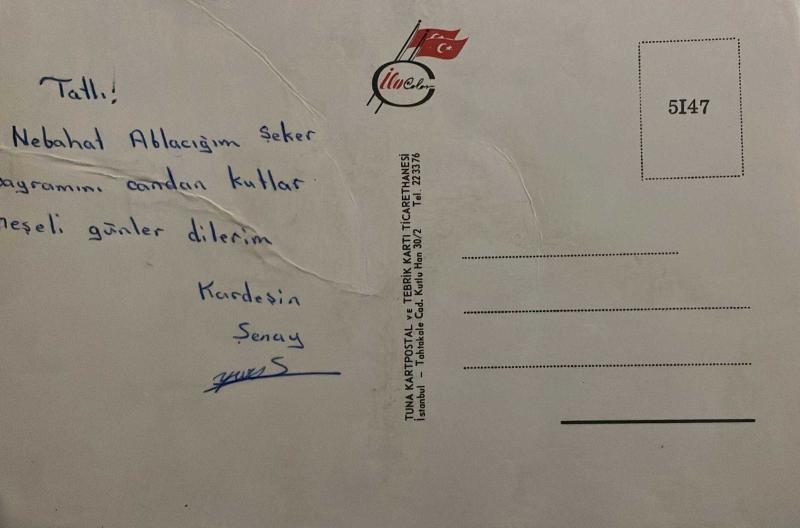 Tatlı!
Nebahat Ablacığım Şeker
bayramını candan kutlar
neşeli günler dilerim
Kardeşin
Şenay
Color
5I47
TUNA KARTPOSTAL ve TEBRİK KARTI TİCARETHANESİ
İstanbul – Tahtakale Cad. Kutlu Han 30/2 Tel. 223376